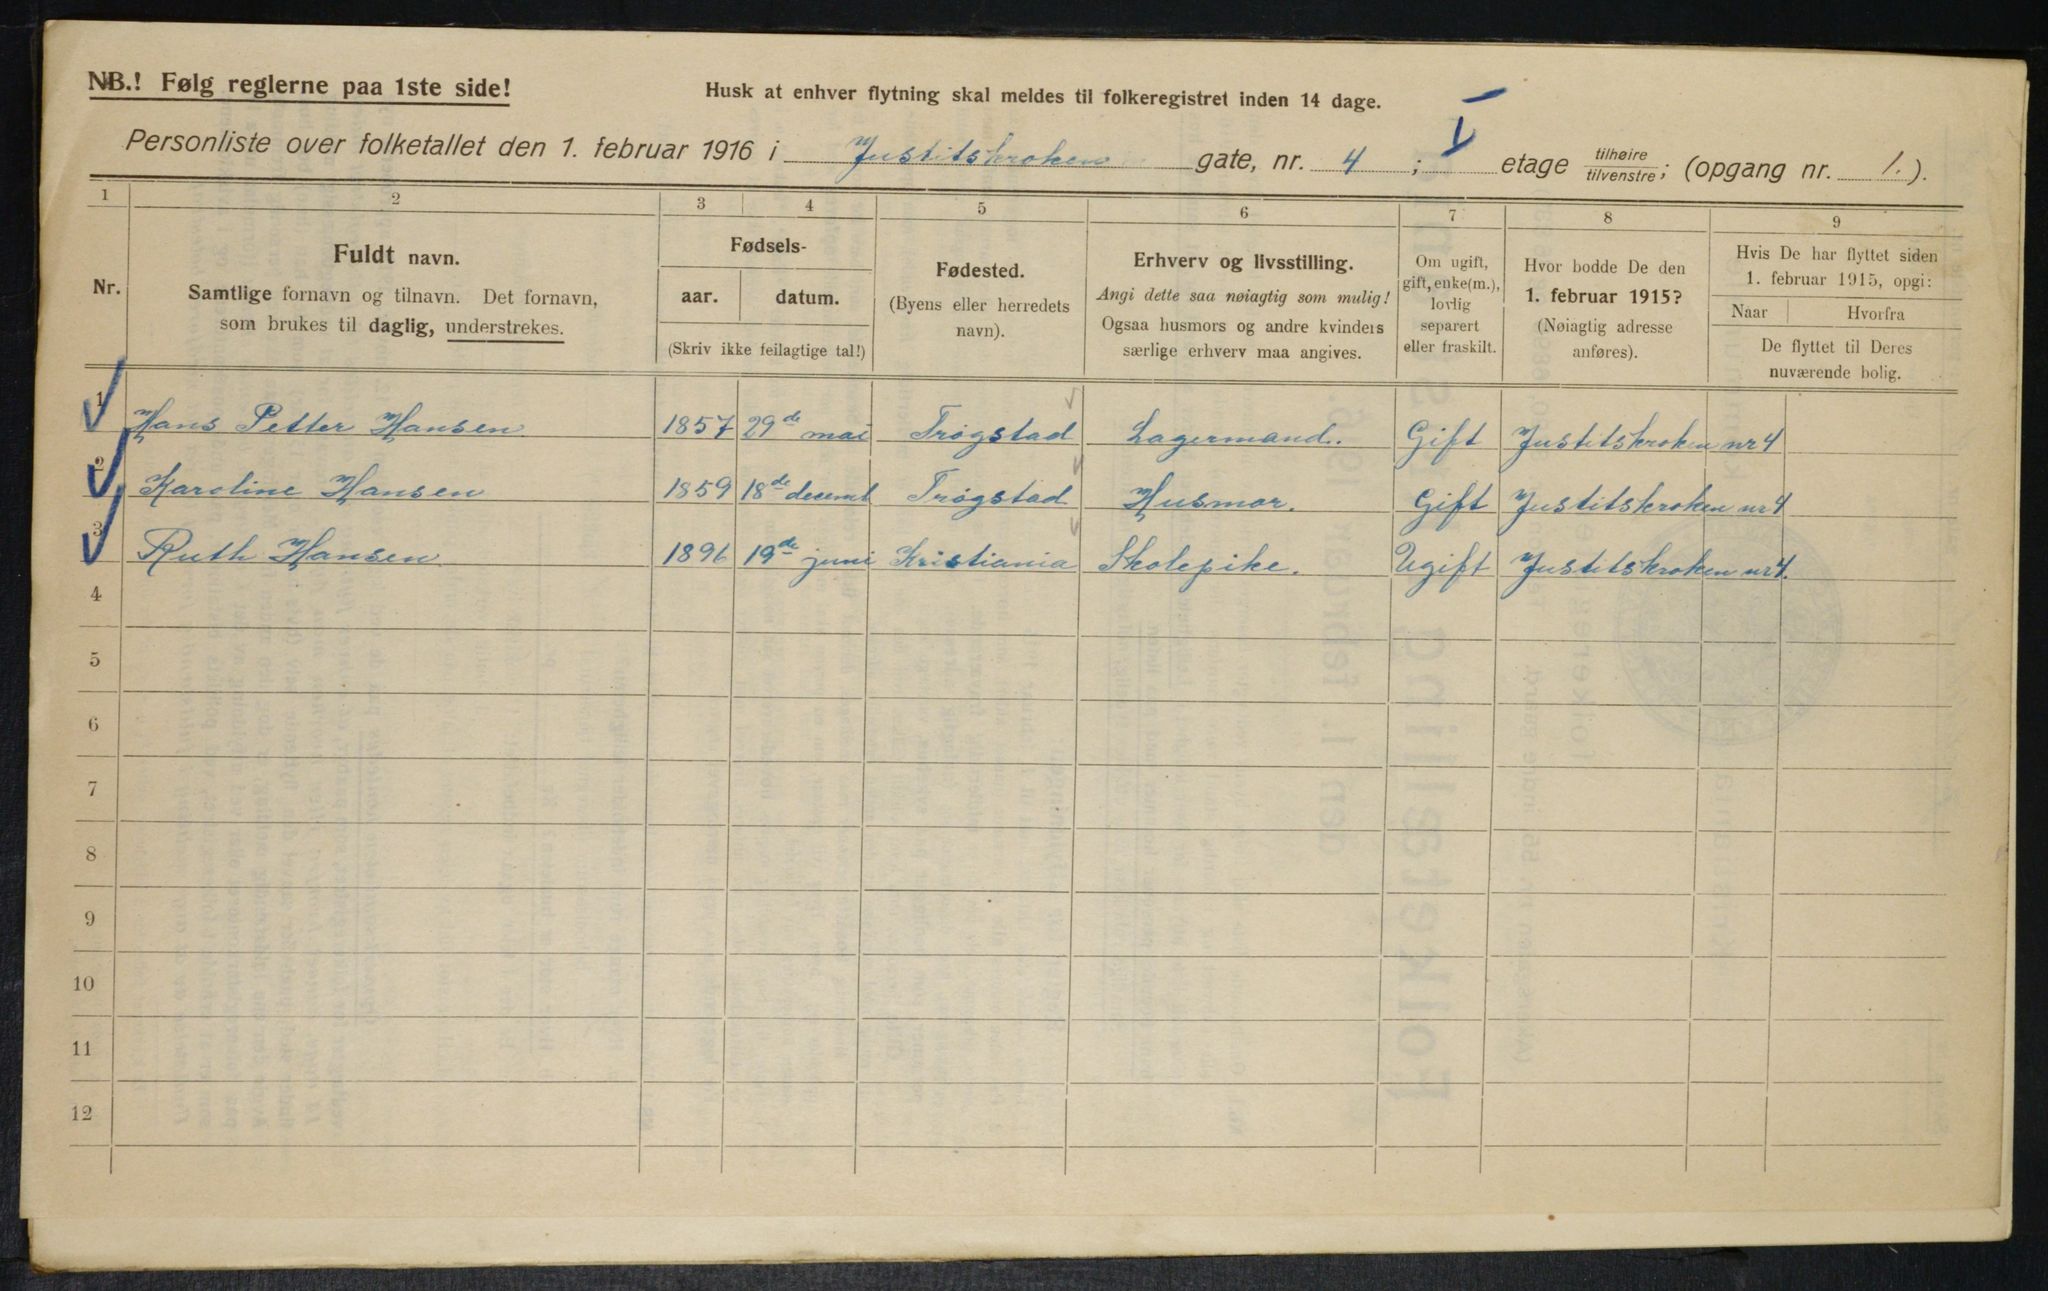 NB.! Følg reglerne paa 1ste side!
Husk at enhver flytning skal meldes til folkeregistret inden 14 dage.
Personliste over folketallet den 1. februar 1916 i Justitskroken gate, nr. 4 ; V etage tilhøire tilvenstre; (opgang nr. 1.).
1 2 3 4 5 6 7 8 9
Nr.
Fuldt navn.
Samtlige fornavn og tilnavn. Det fornavn,
som brukes til daglig, understrekes.
Fødsels-
aar. datum.
(Skriv ikke feilagtige tal!)
Fødested.
(Byens eller herredets
navn).
Erhverv og livsstilling.
Angi dette saa nøiagtig som mulig!
Ogsaa husmors og andre kvinders
særlige erhverv maa angives.
Om ugift,
gift, enke(m.),
lovlig
separert
eller fraskilt.
Hvor bodde De den
1. februar 1915?
(Nøiagtig adresse
anføres).
Hvis De har flyttet siden
1. februar 1915, opgi:
Naar Hvorfra
De flyttet til Deres
nuværende bolig.
1 Hans Petter Hansen 1857 29de mai Trøgstad Lagermand. Gift Justitskroken nr 4
2 Karoline Hansen 1859 18de decemb Trøgstad Husmor. Gift Justitskroken nr 4
3 Ruth Hansen 1896 19de juni Kristiania Skolepike. Ugift Justitskroken nr 4.
4
5
6
7
8
9
10
11
12